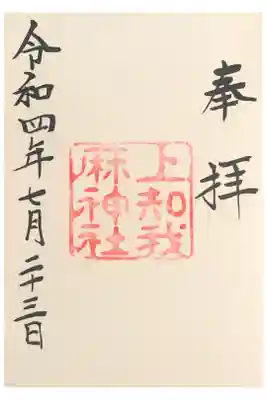 奉拝
上知我
麻神社
令和四年七月二十三日